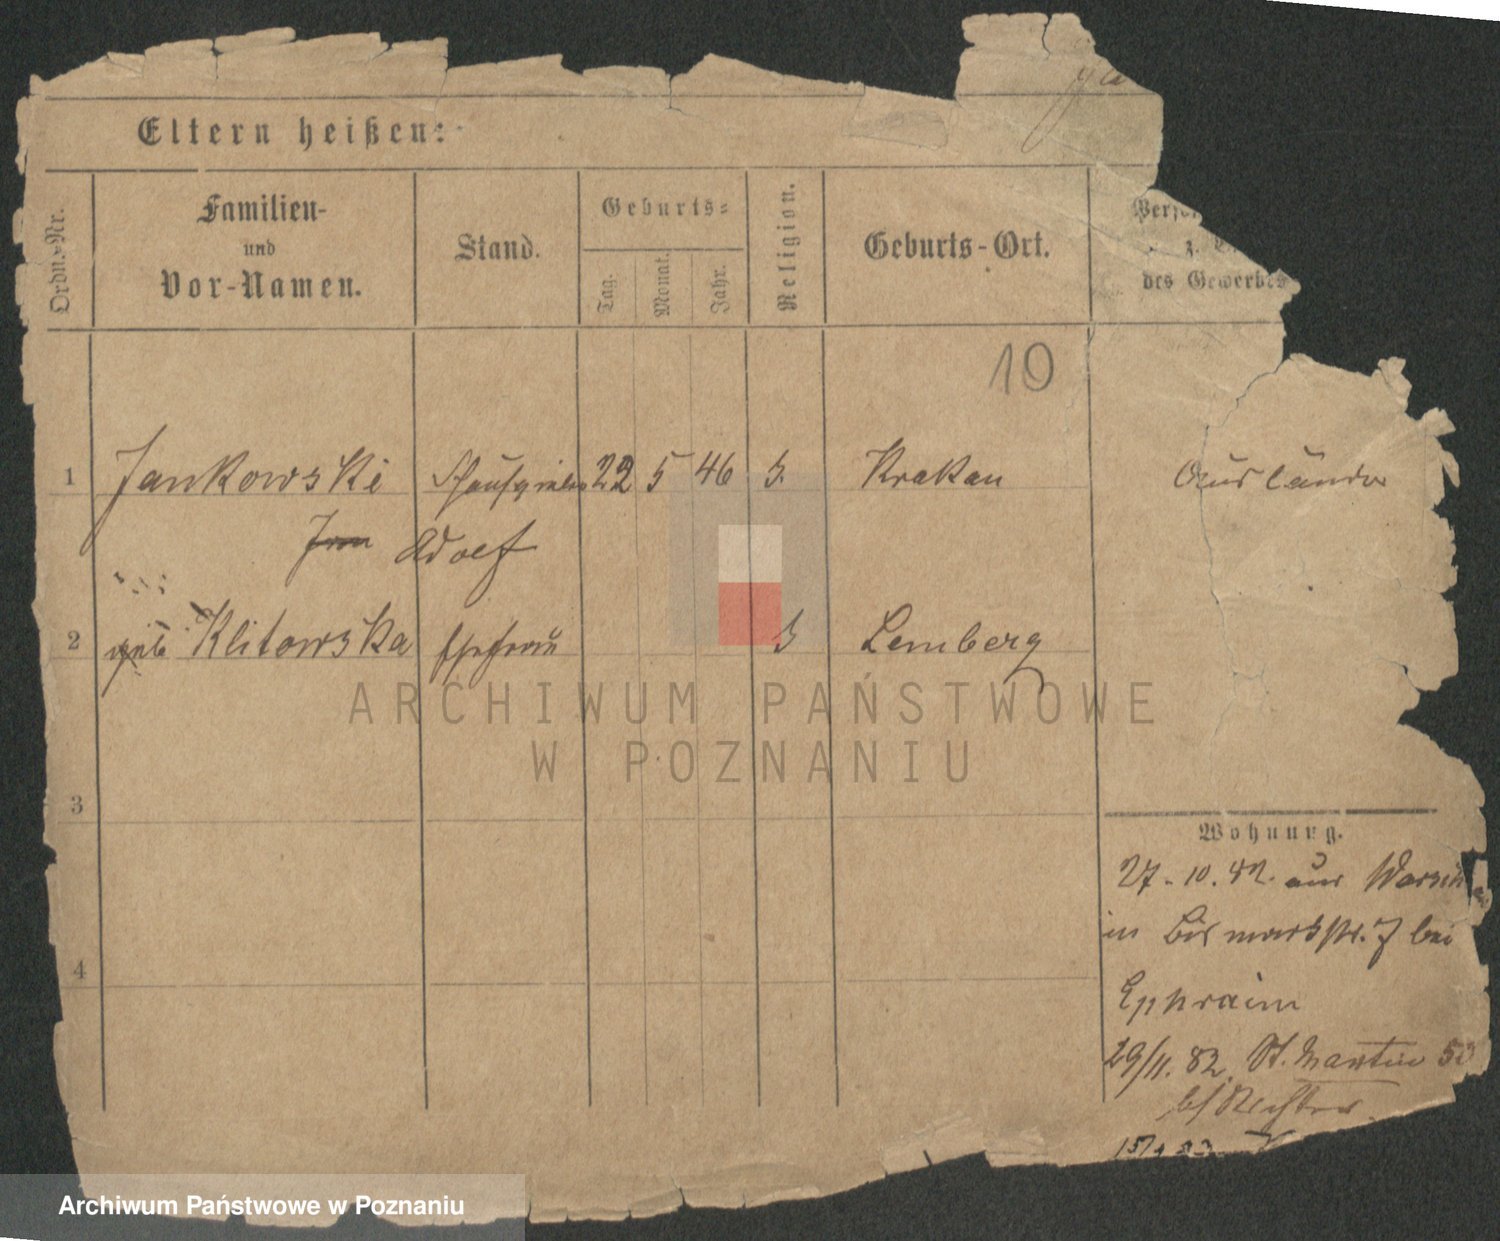 Eltern heißen:
Ordn.-Nr.
Familien-
und
Vor-Namen.
Stand.
Geburts-
Tag.
Monat.
Jahr.
Religion.
Geburts-Ort.
z.
des Gewerbes
10
1 Jankowski Schauspieler 22 5 46 Krakau Ausländer
Adolf
2 geb Klitowska Ehefrau Lemberg
3
4
Wohnung.
27. 10. 82. aus
in Bismarkstr. 7 bei
Ephraim
29/11. 82. St. Martin 53
b/ Richter
ARCHIWUM PAŃSTWOWE
W POZNANIU
Archiwum Państwowe w Poznaniu